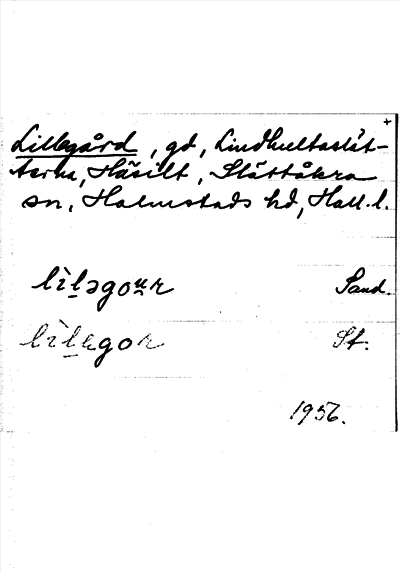 +
Lillegård, gd, Lindhultaslät-
terna, Häsilt, Slättåkra
sn, Halmstads hd, Hall. l.
lìləgour Sand.
lìlagor St.
1956.